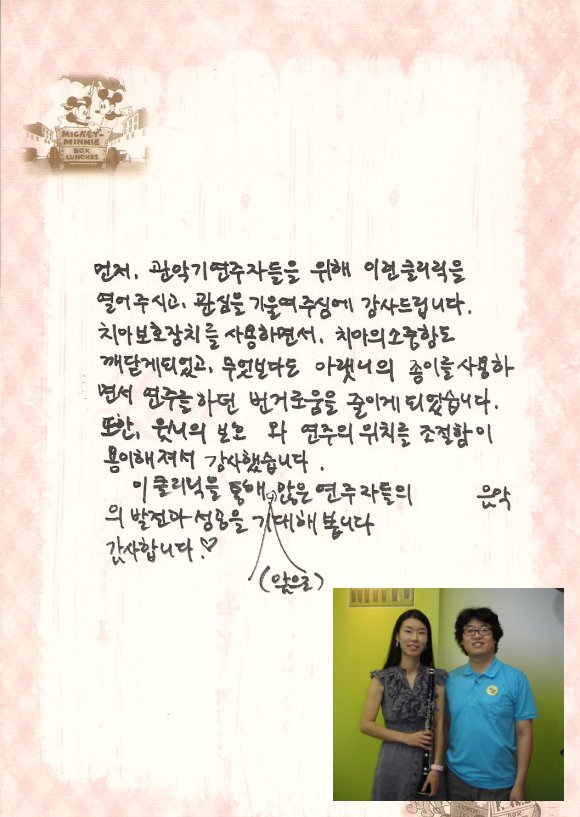 MICKEY-
MINNIE
BOX
LUNCHES
먼저, 관악기연주자들을 위해 이런클리릭을
열어주시고, 관심을 기울여주심에 감사드립니다.
치아보호장치를 사용하면서, 치아의소중함도
깨닫게되었고, 무엇보다도 아랫니의 종이를 사용하
면서 연주를하던 번거로움을 줄이게 되었습니다.
또한, 윗니의 보호 와 연주의 위치를 조절함이
용이해져서 감사했습니다.
이 클리닉을 통해 많은 연주자들의 음악
의 발전과 성공을 기대해 봅니다
감사합니다.♡
(앞으로)
BOX